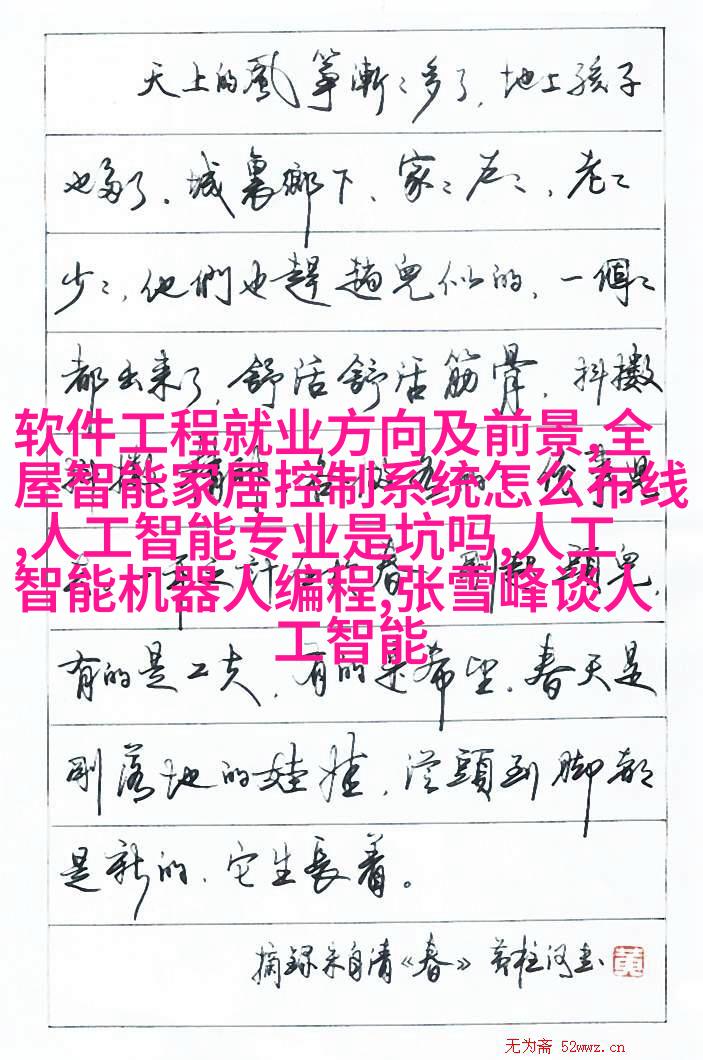 天上的風箏漸〻多了，地上孩子
也多了。城裏鄉下，家〻户〻，老〻
少〻，他們也趕趟兒似的，一個〻
都出来了。舒活舒活筋骨，抖擻
软件工程就业方向及前景,全
屋智能家居控制系统怎么布线
,人工智能专业是坑吗,人工
智能机器人编程,张雪峰谈人
工智能
頭兒，
有的是工夫，有的是希望。春天是
剛落地的娃娃，從頭到脚都
是新的，它生長着。
摘録朱自清《春》 黄柱河书 黄
无为斋 52wwz.cn